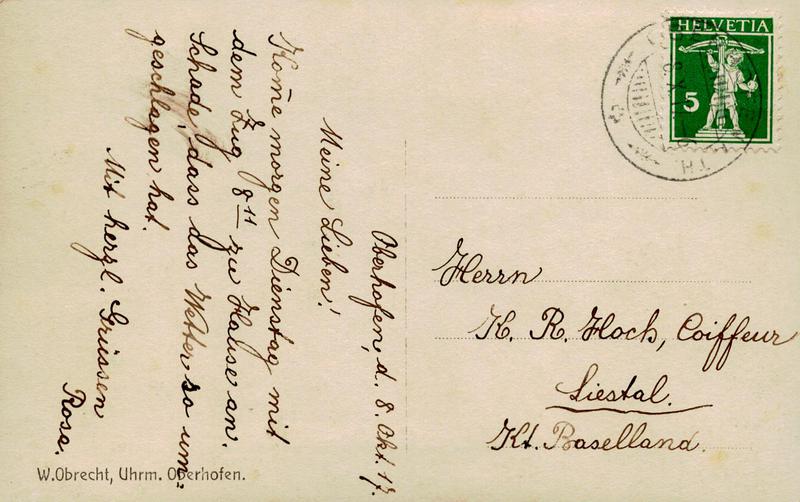 Oberhofen, d. 8. Okt. 17.
Meine Lieben!
Kom̄e morgen Dienstag mit
dem Zug 8 11 zu Hause an.
Schade, dass das Wetter so um-
geschlagen hat.
Mit herzl. Grüssen
Rosa.
W.Obrecht, Uhrm. Oberhofen.
HELVETIA
5
Herrn
K. R. Hoch, Coiffeur
Liestal.
Kt. Baselland.